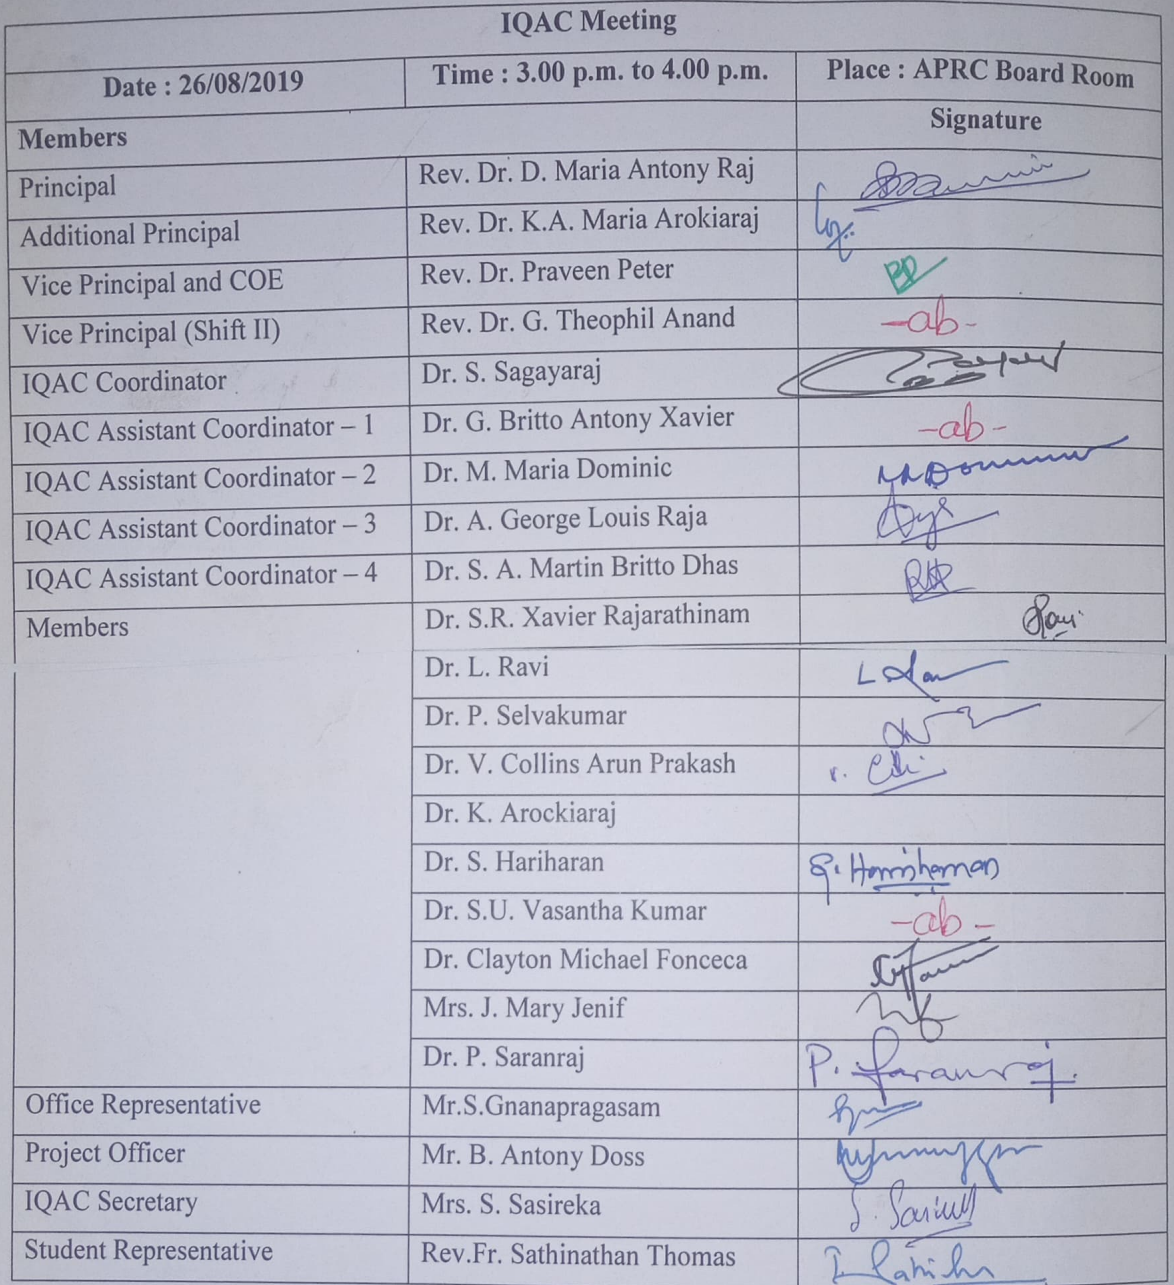 IQAC Meeting
Date : 26/08/2019 Time : 3.00 p.m. to 4.00 p.m. Place : APRC Board Room
Members Signature
Principal Rev. Dr. D. Maria Antony Raj
Additional Principal Rev. Dr. K.A. Maria Arokiaraj
Vice Principal and COE Rev. Dr. Praveen Peter
Vice Principal (Shift II) Rev. Dr. G. Theophil Anand -ab-
IQAC Coordinator Dr. S. Sagayaraj
IQAC Assistant Coordinator – 1 Dr. G. Britto Antony Xavier -ab-
IQAC Assistant Coordinator – 2 Dr. M. Maria Dominic
IQAC Assistant Coordinator – 3 Dr. A. George Louis Raja
IQAC Assistant Coordinator – 4 Dr. S. A. Martin Britto Dhas
Members Dr. S.R. Xavier Rajarathinam
Dr. L. Ravi
Dr. P. Selvakumar
Dr. V. Collins Arun Prakash
Dr. K. Arockiaraj
Dr. S. Hariharan
Dr. S.U. Vasantha Kumar -ab-
Dr. Clayton Michael Fonceca
Mrs. J. Mary Jenif
Dr. P. Saranraj P. Saranraj.
Office Representative Mr.S.Gnanapragasam
Project Officer Mr. B. Antony Doss
IQAC Secretary Mrs. S. Sasireka
Student Representative Rev.Fr. Sathinathan Thomas